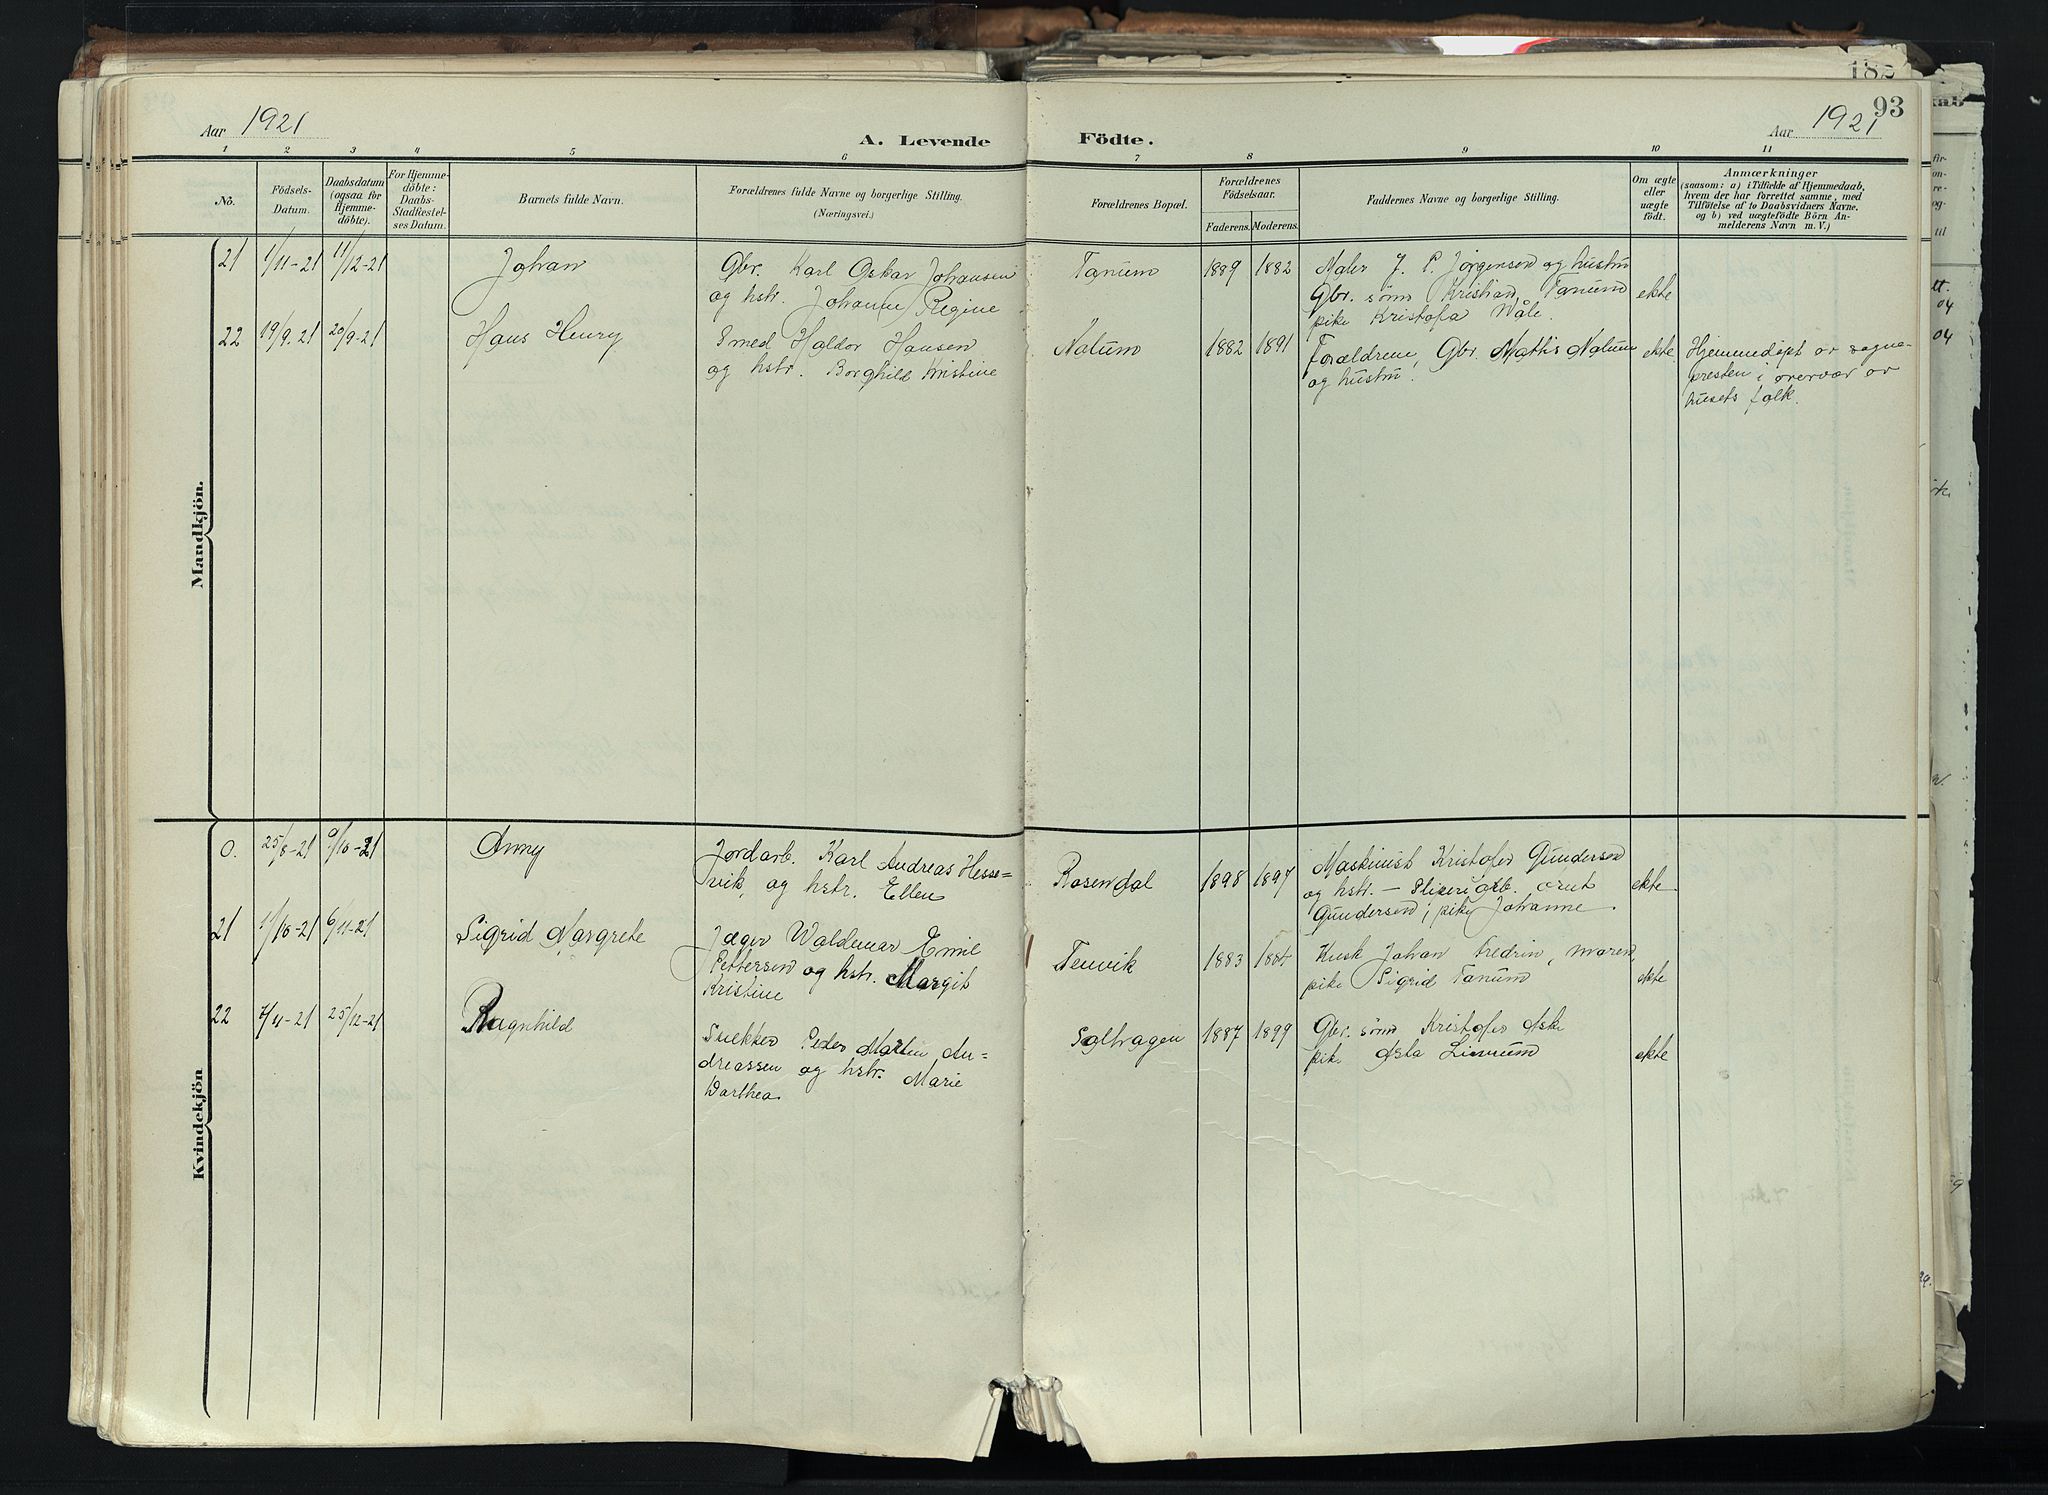 182
93
Aar 1921
A. Levende
Födte.
Aar 1921
1 2 3 4 5 6 7 8 9 10 11
No.
Födsels-
Datum.
Daabsdatum
(ogsaa for
Hjemme-
döbte).
For Hjemme-
döbte:
Daabs-
Stadfestel-
ses Datum.
Barnets fulde Navn.
Forældrenes fulde Navne og borgerlige Stilling.
(Næringsvei.)
Forældrenes Bopæl.
Forældrenes
Födselsaar.
Faderens.
Moderens.
Faddernes Navne og borgerlige Stilling.
Om ægte
eller
uægte
födt.
Anmærkninger
(saasom: a) i Tilfælde af Hjemmedaab,
hvem der har forrettet samme, med
Tilföielse af to Daabsvidners Navne.
og b) ved uægtefödte Börn An-
melderens Navn m. V.)
Mandkjön.
21 1/11-21 11/12-21 Johan
Gbr. Karl Oskar Johansen
og hstr. Johanne Regine
Tanum 1889 1882
Maler J. P. Jörgensen og hustru
Gbr. sönn Kristian Tanum
pike Kristofa Våle.
ekte
22 19/9.21 20/9-21 Hans Henry
Smed Haldor Hansen
og hstr. Borghild Kristine
Nalum 1882 1891
Forældrene, Gbr. Mathis Nalum
og hustru.
ekte
Hjemmedöpt av sogne-
presten i overvær av
husets folk.
Kvindekjön
0. 25/8-21 9/10-21 Anny
Jordarb. Karl Andreas Hesse=
vik, og hstr. Ellen
Rosendal 1898 1897
Maskinist Kristofer Gundersen
og hstr. - Sliperiarb.
Gundersen, pike Johanne.
ekte
21 1/10-21 6/11-21 Sigrid Margrete
Jæger Waldemar Emil
Pettersen og hstr. Margit
Kristine
Tenvik 1883 1884
Kusk Johan Fredrin, maren,
pike Sigrid Tanum
ekte
22 7/11-21 25/12-21 Ragnhild
Snekker Peder Martin An=
dreassen og hstr. Marie
Marthea
Saltvagen 1887 1899
Gbr. sönn Kristofer Aske
pike Asta Linnum
ekte